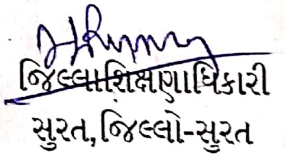 જિલ્લાશિક્ષણાધિકારી
સુરત, જિલ્લો-સુરત